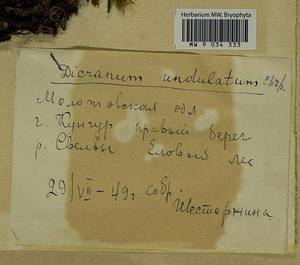 Herbarium MW, Bryophyta
MW 9 034 333
Dicranum undulatum Ehrh.
Молотовская обл
г. Кунгур правый берег
р. Сылвы Еловый лес
29/VII-49г. собр.
Шестернина